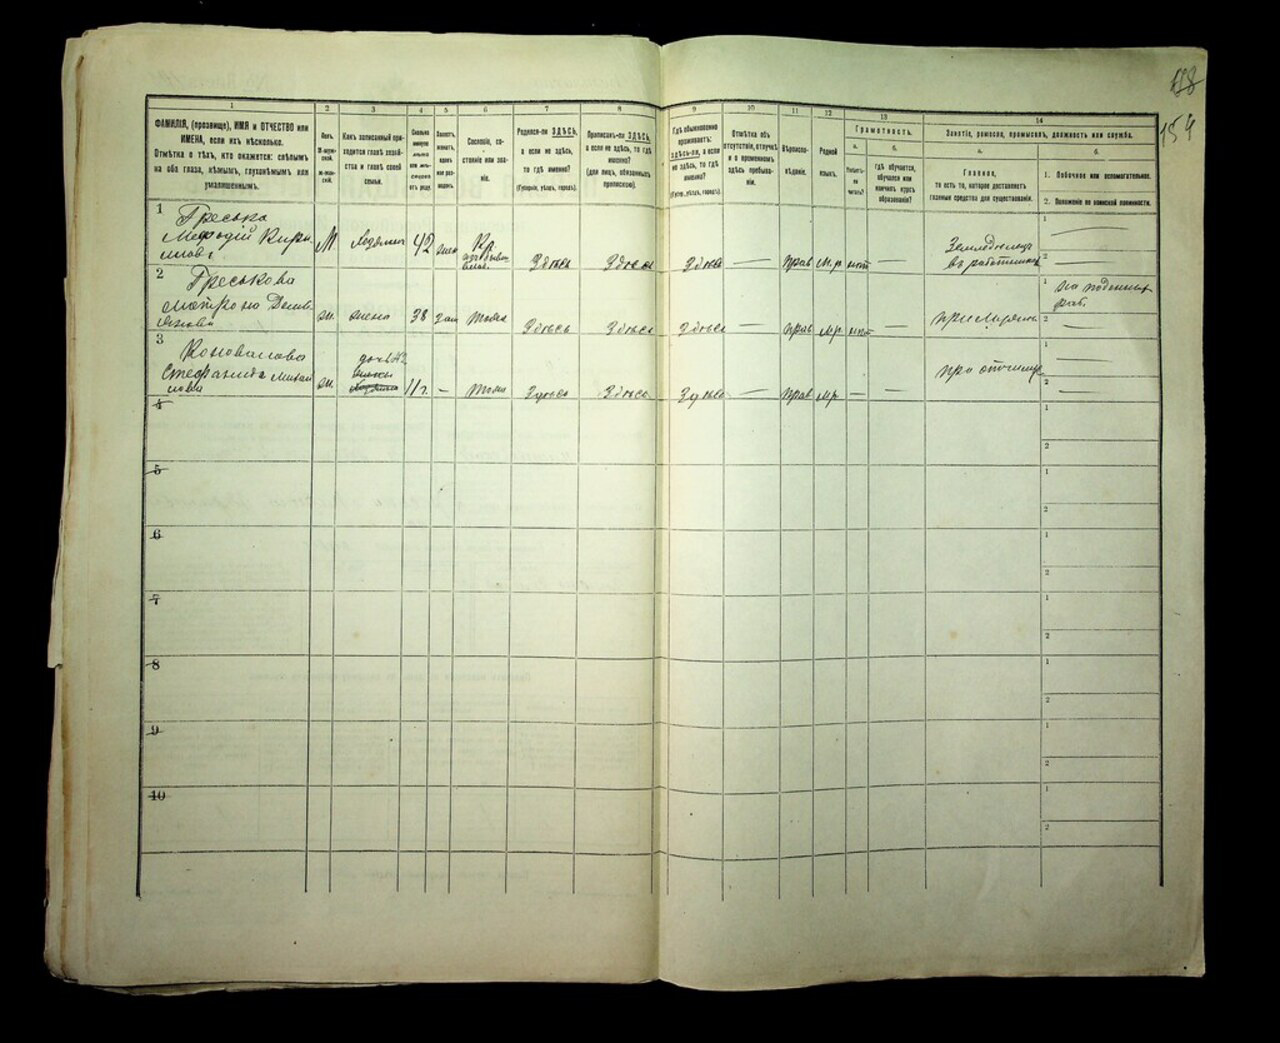 118
154
1
2
3
4
5
6
7
8
9
10
11
12
13
14
ФАМИЛІЯ, (прозвище), ИМЯ и ОТЧЕСТВО или
ИМЕНА, если ихъ нѣсколько.
Отмѣтка о тѣхъ, кто окажется: слѣпымъ
на оба глаза, нѣмымъ, глухонѣмымъ или
умалишеннымъ.
Полъ.
М-муж-
ской.
Ж-жен-
скій.
Какъ записанный при-
ходится главѣ хозяй-
ства и главѣ своей
семьи.
Сколько
минуло
лѣтъ
или мѣ-
сяцевъ
отъ роду.
Холостъ,
женатъ,
вдовъ
или раз-
веденъ.
Сословіе, со-
стояніе или зва-
ніе.
Родился-ли ЗДѢСЬ,
а если не здѣсь,
то гдѣ именно?
(Губернія, уѣздъ, городъ).
Приписанъ-ли ЗДѢСЬ,
а если не здѣсь, то гдѣ
именно?
(для лицъ, обязанныхъ
припискою).
Гдѣ обыкновенно
проживаетъ:
здѣсь-ли, а если
не здѣсь, то гдѣ
именно?
(Губер., уѣздъ, городъ).
Отмѣтка объ
отсутствіи, отлучкѣ
и о временномъ
здѣсь пребыва-
ніи.
Вѣроиспо-
вѣданіе.
Родной
языкъ.
Грамотность.
а.
б.
Умѣетъ-
ли
читать?
гдѣ обучается,
обучался или
кончилъ курсъ
образованія?
Занятіе, ремесло, промыселъ, должность или служба.
а.
б.
Главное,
то есть то, которое доставляетъ
главныя средства для существованія.
1. Побочное или вспомогательное.
2. Положеніе по воинской повинности.
1
Греська
Мефодій Кири-
ловъ
М
Хозяинъ
42
жен
Кр.
Здѣсь
Здѣсь
Здѣсь
—
прав
М.р.
нѣт
—
Земледѣлецъ
въ работникахъ
1
—
2
—
2
Греськова
Матрона Деми-
ж.
жена
38
зам
тоже
Здѣсь
Здѣсь
Здѣсь
—
прав
мр.
нѣт
—
при мужѣ
1
на поденныхъ
раб.
2
—
3
Коновалова
Стефанида Михай
лова
ж.
дочь
жены
11 г.
—
тоже
Здѣсь
Здѣсь
Здѣсь
—
прав
мр.
—
—
при отчимѣ
1
—
2
—
4
1
2
5
1
2
6
1
2
7
1
2
8
1
2
9
1
2
10
1
2